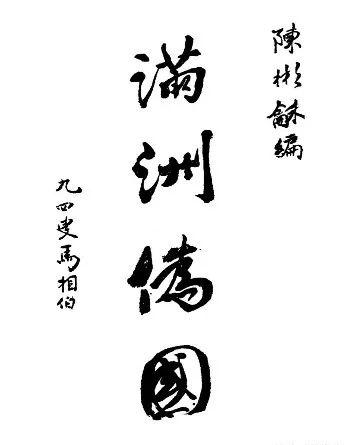 陳彬龢編
滿洲偽國
九四叟馬相伯